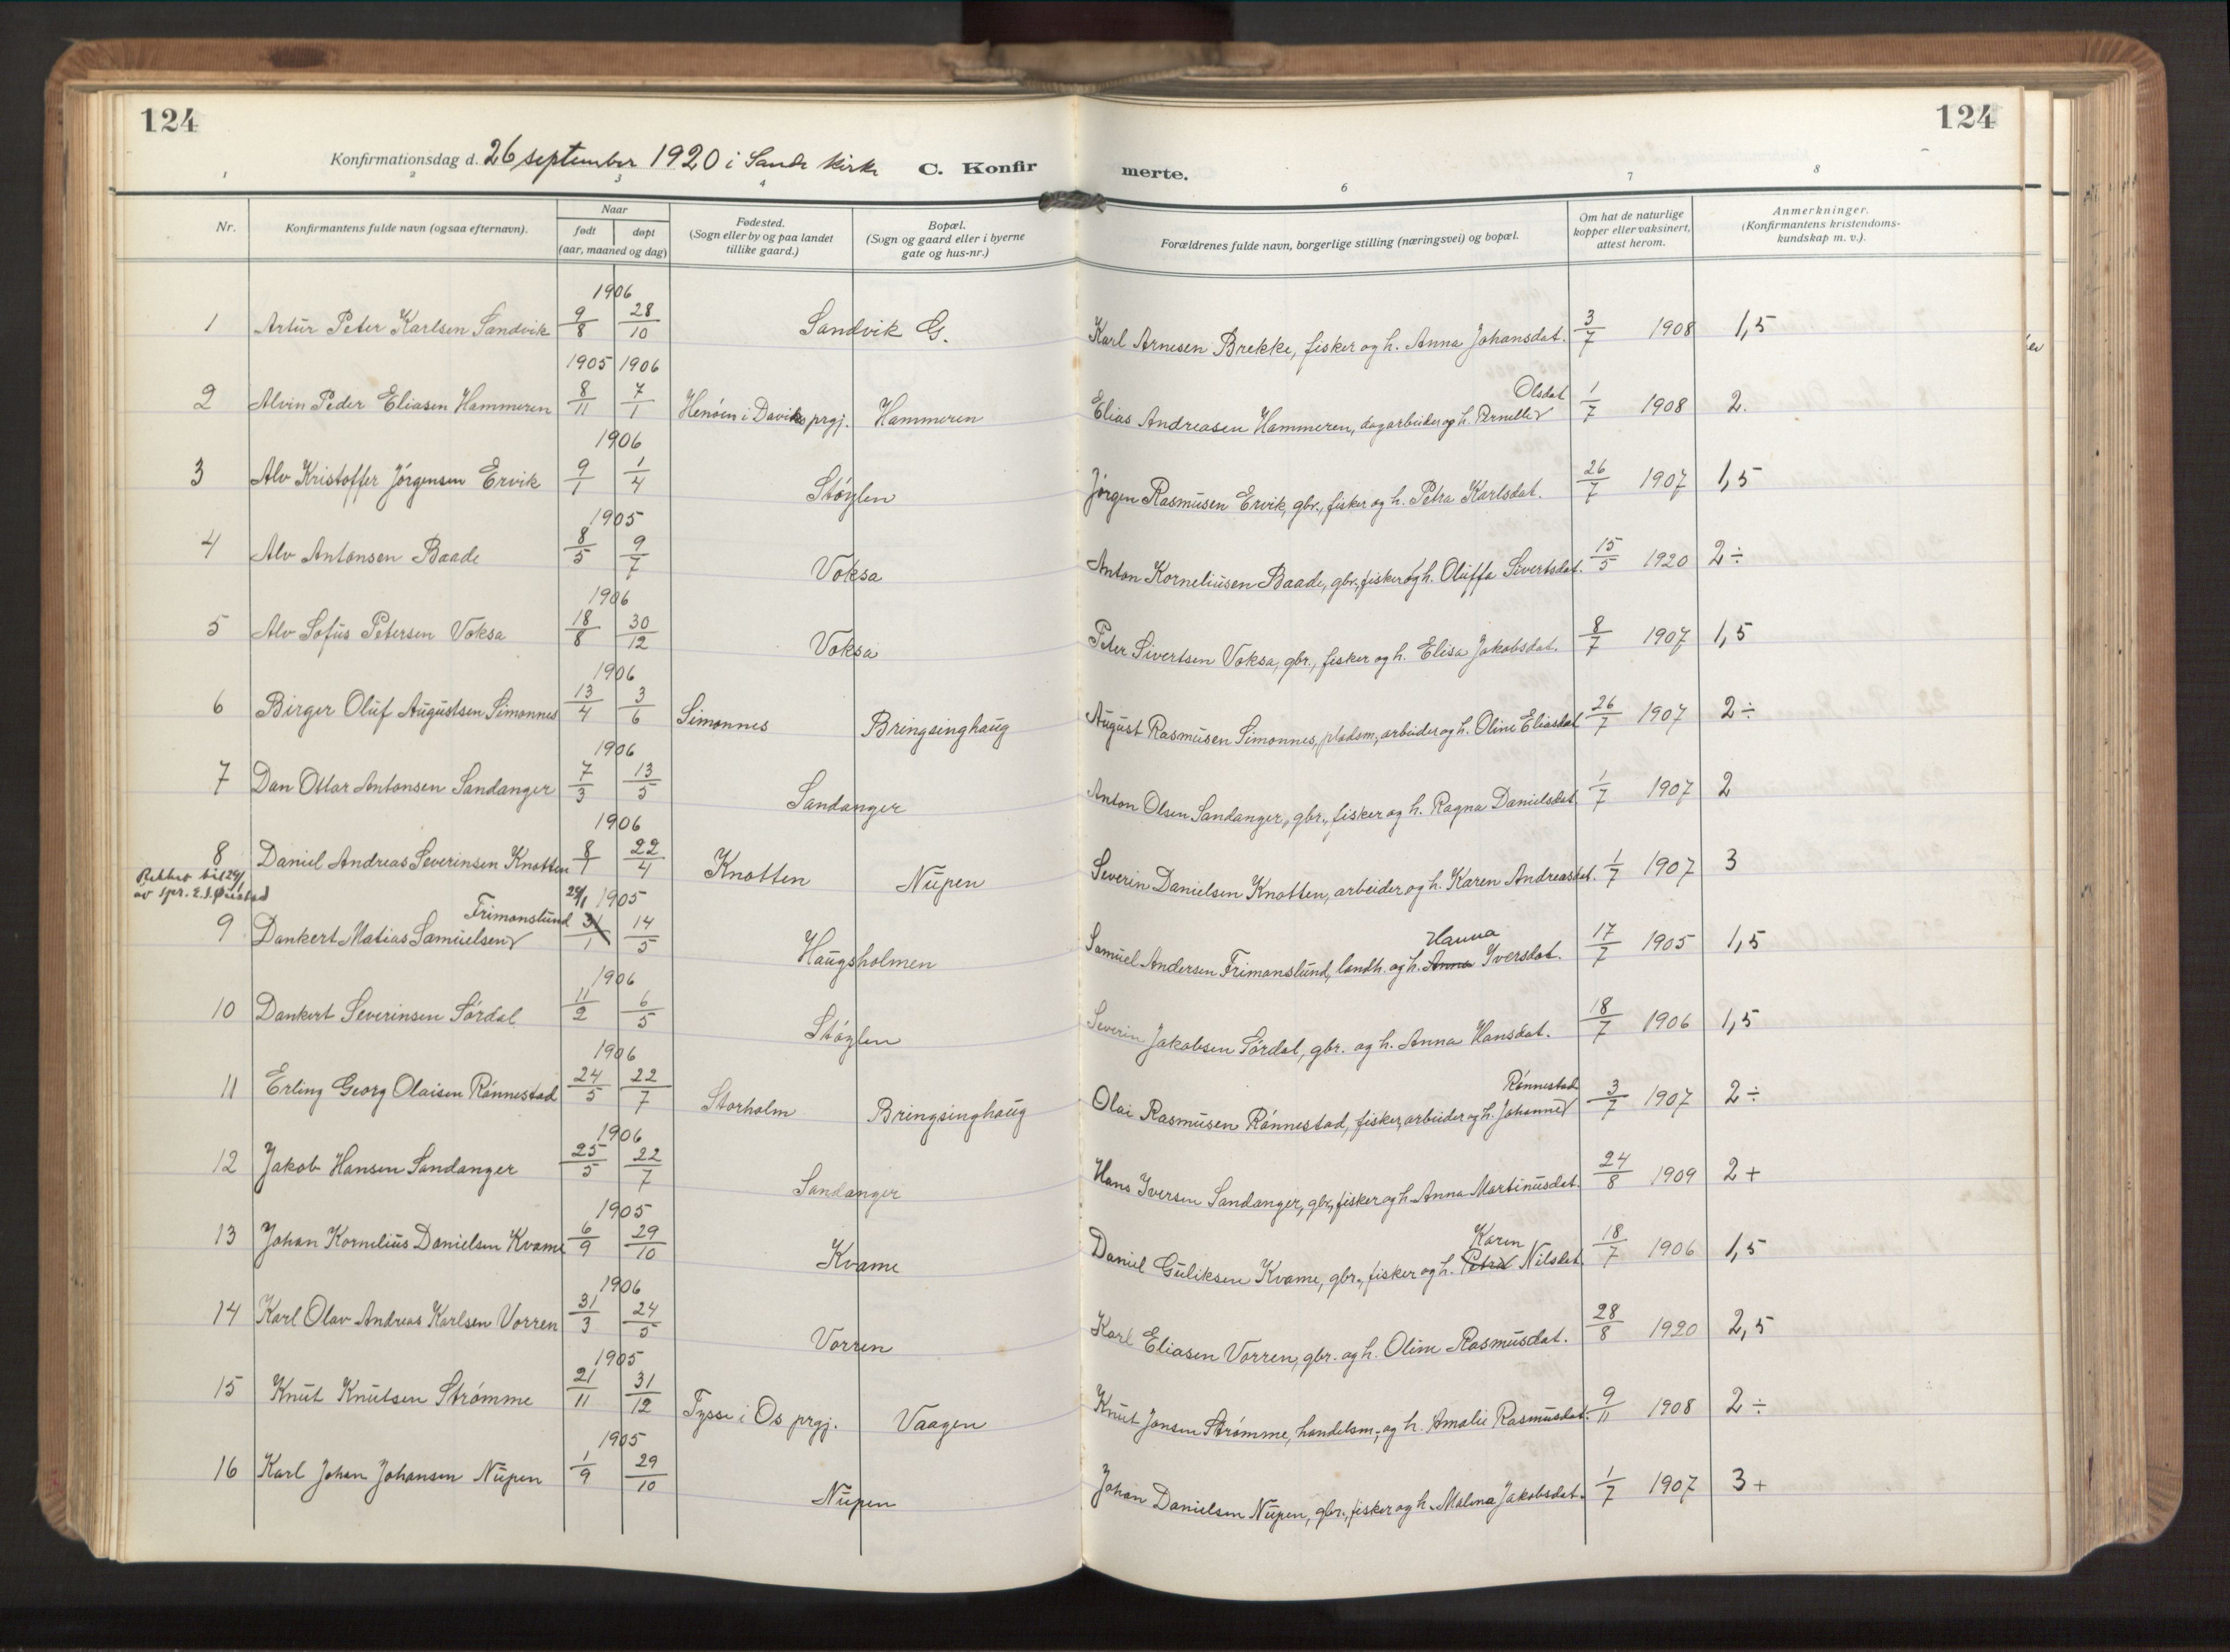 124
124
Konfirmationsdag d. 26 september 1920 i Sande kirke C. Konfirmerte.
1 2 3 4 6 7 8
Nr. Konfirmantens fulde navn (ogsaa efternavn). Naar født døpt (aar, maaned og dag) Fødested. (Sogn eller by og paa landet tillike gaard.) Bopæl. (Sogn og gaard eller i byerne gate og hus-nr.) Forældrenes fulde navn, borgerlige stilling (næringsvei) og bopæl. Om hat de naturlige kopper eller vaksinert, attest herom. Anmerkninger. (Konfirmantens kristendoms-kundskap m. v.).
1906
1 Artur Peter Karlsen Sandvik 9/8 28/10 Sandvik G. Karl Arnesen Brekke, fisker og h. Anna Johansdat. 3/7 1908 1,5
1905 1906
2 Alvin Peder Eliasen Hammeren 8/11 7/1 Henöen i Daviks prgj. Hammeren Elias Andreasen Hammeren, dagarbeider og h. Pernelle Olsdat 1/7 1908 2.
1906
3 Alv Kristoffer Jörgensen Ervik 9/1 1/4 Stöylen Jörgen Rasmusen Ervik, gbr., fisker og h. Petra Karlsdat. 26/7 1907 1,5
1905
4 Alv Antonsen Baade 8/5 9/7 Voksa Anton Korneliusen Baade, gbr., fisker og h. Oluffa Sivertsdat. 15/5 1920 2÷
1906
5 Alv Sofus Petersen Voksa 18/8 30/12 Voksa Peter Sivertsen Voksa, gbr., fisker og h. Elisa Jakobsdat. 8/7 1907 1,5
1906
6 Birger Oluf Augustsen Simonnes 13/4 3/6 Simonnes Bringsinghaug August Rasmusen Simonnes, pladsm., arbeider og h. Oline Eliasdat 26/7 1907 2÷
1906
7 Dan Ottar Antonsen Sandanger 7/3 13/5 Sandanger Anton Olsen Sandanger, gbr., fisker og h. Ragna Danielsdat 1/7 1907 2
1906
8 Daniel Andreas Severinsen Knotten 8/1 22/4 Knotten Nupen Severin Danielsen Knotten, arbeider og h. Karen Andreasdat. 1/7 1907 3
Rettet til 29/1
av spr. E. J. Øvestad
29/1 1905
9 Dankert Matias Samuelsen Frimanslund 31/1 14/5 Haugsholmen Samuel Andersen Frimanslund, landh. og h. Anna Hanna Iversdat. 17/7 1905 1,5
1906
10 Dankert Severinsen Sördal 11/2 6/5 Stöylen Severin Jakobsen Sördal, gbr. og h. Anna Hansdat. 18/7 1906 1,5
1906
11 Erling Georg Olaisen Rönnestad 24/5 22/7 Storholm Bringsinghaug Olai Rasmusen Rönnestad, fisker, arbeider og h. Johanne Rönnestad 3/7 1907 2÷
1906
12 Jakob Hansen Sandanger 25/5 22/7 Sandanger Hans Iversen Sandanger, gbr., fisker og h. Anna Martinusdat. 24/8 1909 2+
1905
13 Johan Kornelius Danielsen Kvame 6/9 29/10 Kvame Daniel Guliksen Kvame, gbr., fisker og h. Petra Karen Nilsdat. 18/7 1906 1,5
1906
14 Karl Olav Andreas Karlsen Vorren 31/3 24/5 Vorren Karl Eliasen Vorren, gbr. og h. Oline Rasmusdat. 28/8 1920 2,5
1905
15 Knut Knutsen Strömme 21/11 31/12 Tysse i Os prgj. Vaagen Knut Jonsen Strömme, handelsm., og h. Amalie Rasmusdat. 9/11 1908 2÷
1905
16 Karl Johan Johansen Nupen 1/9 29/10 Nupen Johan Danielsen Nupen, gbr., fisker og h. Malena Jakobsdat. 1/7 1907 3+